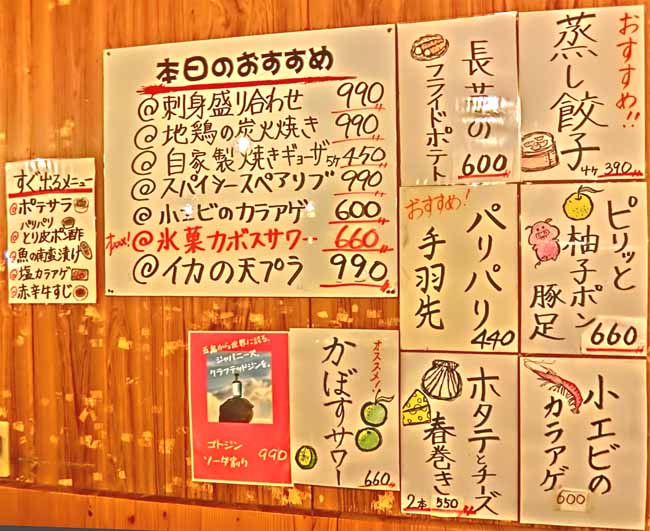 本日のおすすめ
@刺身盛り合わせ 990
@地鶏の炭火焼き 990
@自家製焼きギョーザ5ヶ450
@スパイシースペアリブ 990
@小エビのカラアゲ 600
@氷菓カボスサワー 660
@イカの天プラ 990
すぐ出るメニュー
@ポテサラ
パリパリ
@とり皮ポン酢
@魚の南蛮漬け
@塩カラアゲ
@赤辛牛すじ
長芋の
フライドポテト
600
おすすめ!!
蒸し餃子
4ヶ 390
おすすめ!
パリパリ
手羽先
440
ピリッと
柚子ポン
豚足
660
五島から世界に誇る、
ジャパニーズ、
クラフテッドジンを。
ゴトジン
ソーダ割り 990
オススメ!!
かぼすサワー
660
ホタテとチーズ
春巻き
2本 550
小エビの
カラアゲ
600